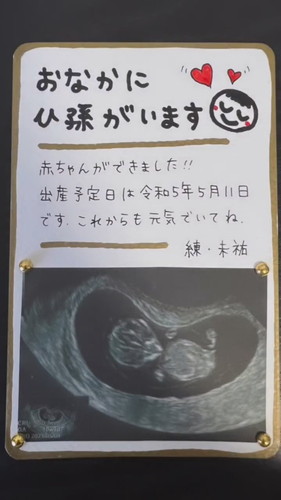 おなかに
ひ孫がいます
赤ちゃんができました!!
出産予定日は令和5年5月11日
です。これからも元気でいてね。
練・未祐